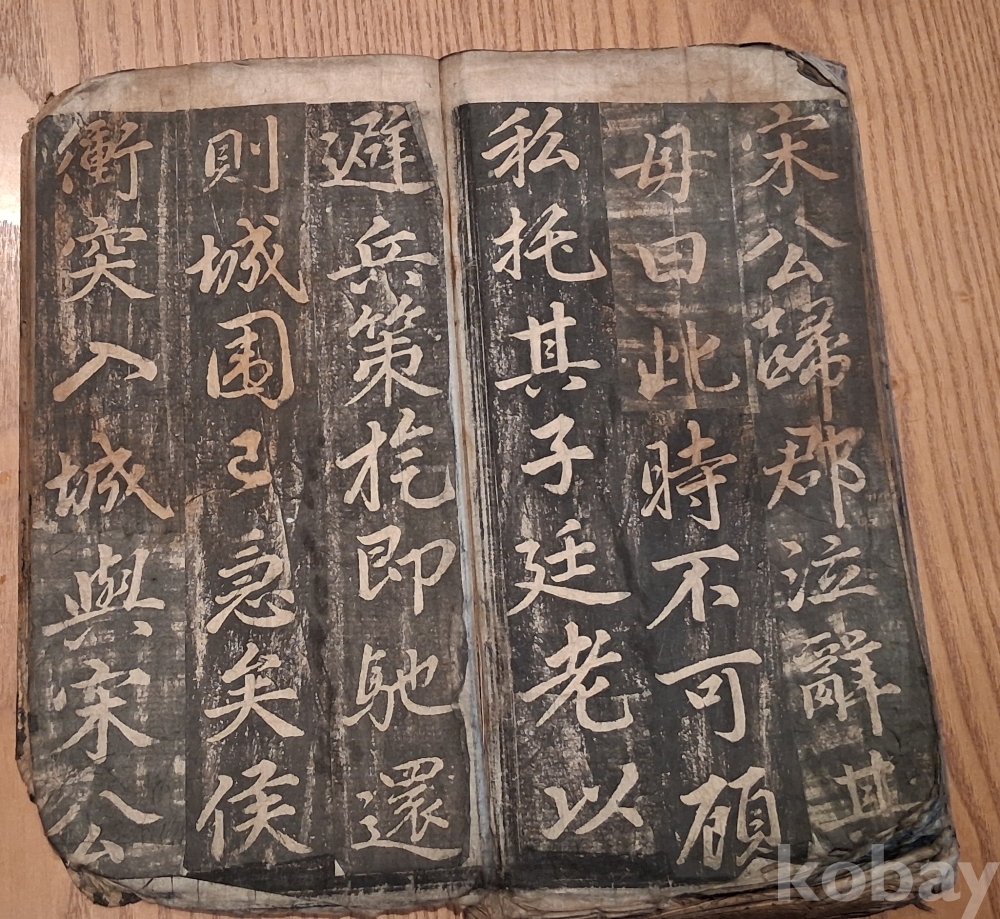 宋公歸郡泣辭其
母曰此時不可顧
私托其子廷老以
避兵策拖即馳還
則城围已急矣侯
衝突入城與宋公
kobay